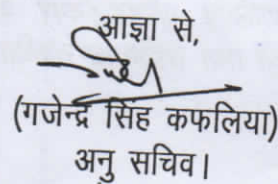 आज्ञा से,
(गजेन्द्र सिंह कफलिया)
अनु सचिव।